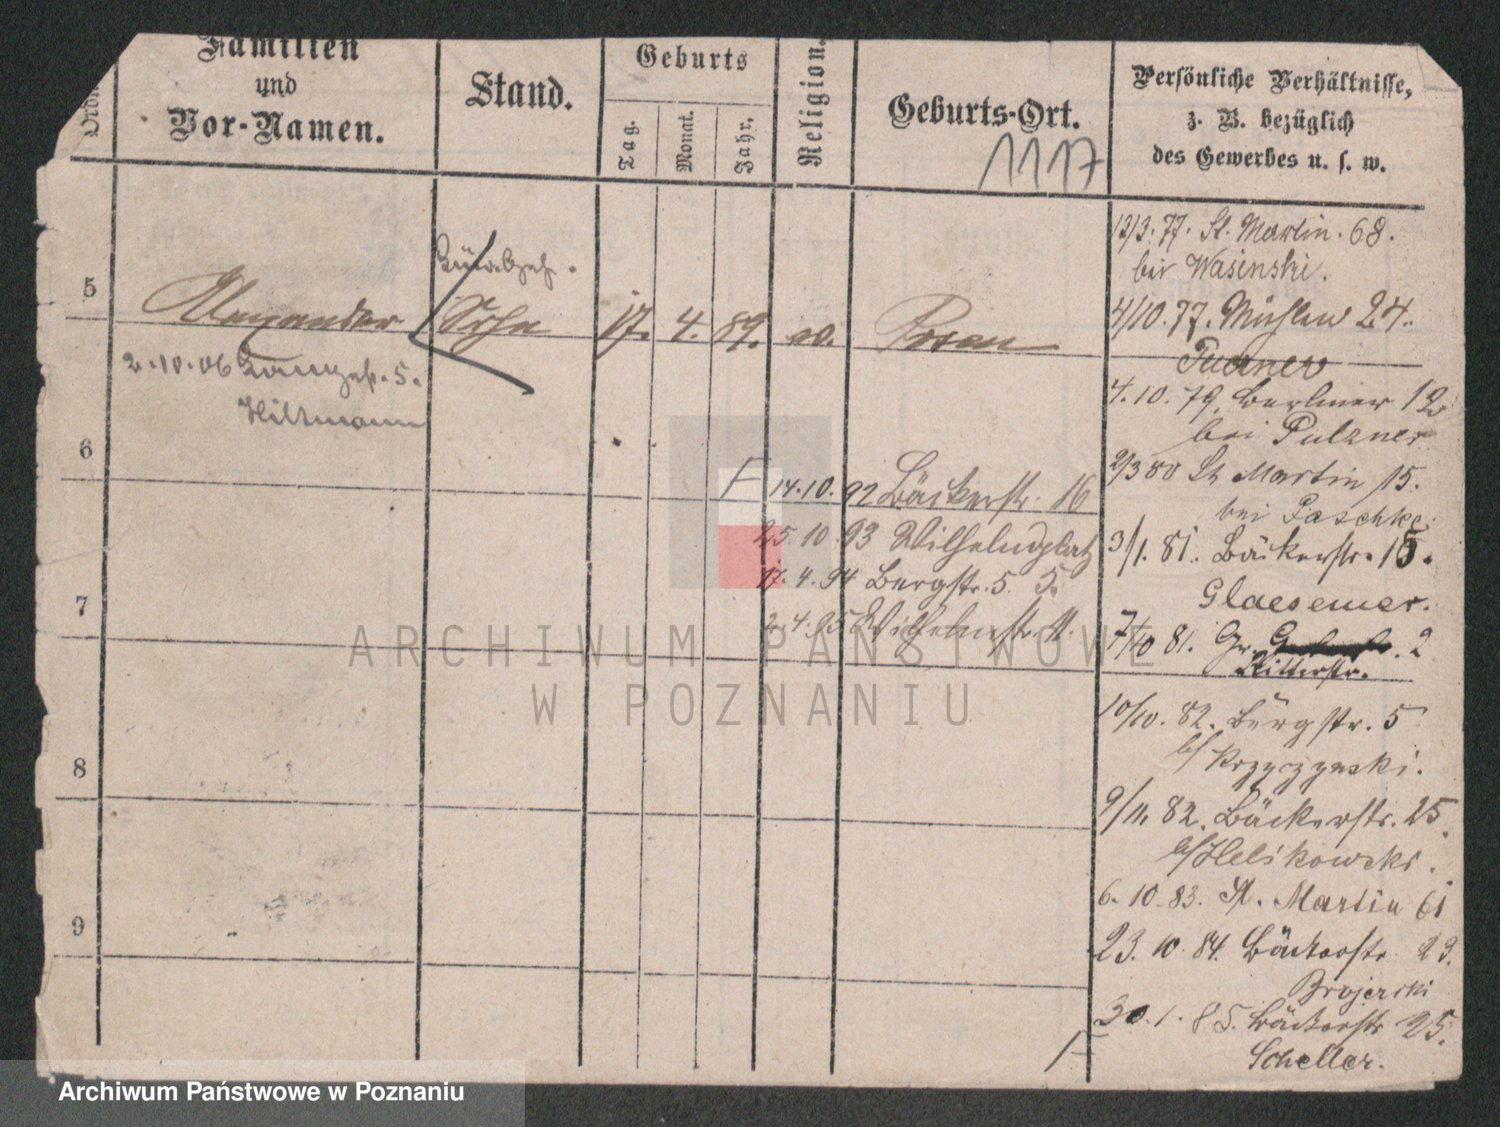 Familien
und
Vor-Namen.
Stand.
Geburts
Tag.
Monat.
Jahr.
Religion.
Geburts-Ort.
1117
Persönliche Verhältnisse,
z. B. bezüglich
des Gewerbes u. s. w.
5
Alexander
Sohn
17. 4. 89. ev.
Posen
2.10.06 5.
Hiltmann
6
F 14.10.92 Bäckerstr. 16
25.10.93 Wilhelmsplatz
17.4.94 Bergstr. 5. 5.
2.4.95 Wilhelmstr. 11.
7
8
9
13/3.77. St. Martin. 68.
bei Wasinski.
4/10.77. Mühlen 24.
Putzner
4.10.79. Berliner 12
bei Pulzner
2/3 80 St Martin 15.
bei Paschke.
3/1.81. Bäckerstr. 15.
Glaesemer.
7/10 81. Gr. 2
Ritterstr.
10/10.82. Bergstr. 5
b/ Krzyzynski.
9/11.82. Bäckerstr. 25.
b/ Helikowski.
6.10.83. St. Martin 61
23.10.84. Bäckerstr. 23.
Brojerski
30.1.85. Bäckerstr 25.
Scheller.
F
ARCHIWUM PAŃSTWOWE
W POZNANIU
Archiwum Państwowe w Poznaniu